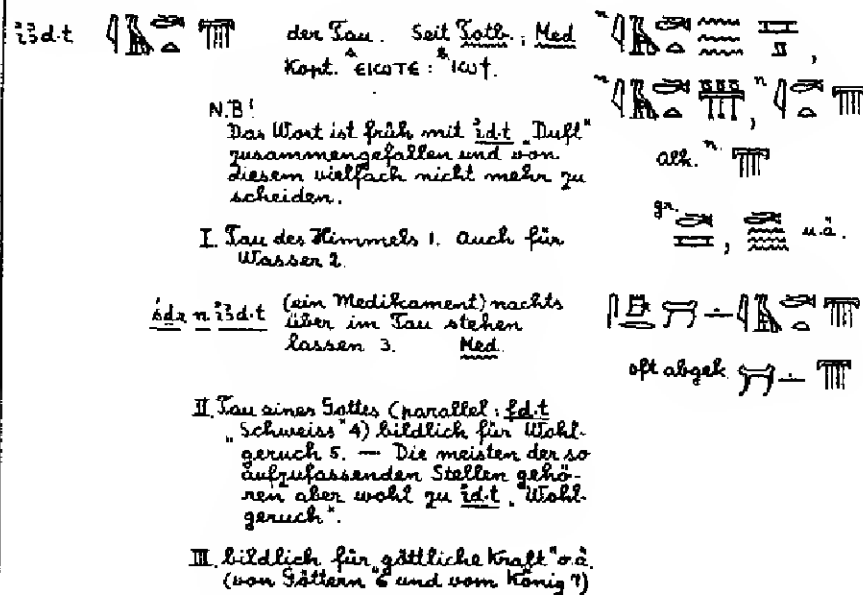 i͗ꜣd·t der Tau. Seit Totb.; Med
Kopt. ⲉⲓⲱⲧⲉ : ⲓⲱϯ.
N.B!
Das Wort ist früh mit i͗d·t „Duft"
zusammengefallen und von
diesem vielfach nicht mehr zu
scheiden.
I. Tau des Himmels 1. Auch für
Wasser 2.
śdr n i͗ꜣd·t (ein Medikament) nachts
über im Tau stehen
lassen 3. Med.
II. Tau eines Gottes (parallel: fd·t
„Schweiss" 4) bildlich für Wohl-
geruch 5. — Die meisten der so
aufzufassenden Stellen gehö-
ren aber wohl zu i͗d·t „Wohl-
geruch".
III. bildlich für „göttliche Kraft" o.ä.
(von Göttern 6 und vom König 7)
n
n n
n.
gr. u.ä.
oft abgek.